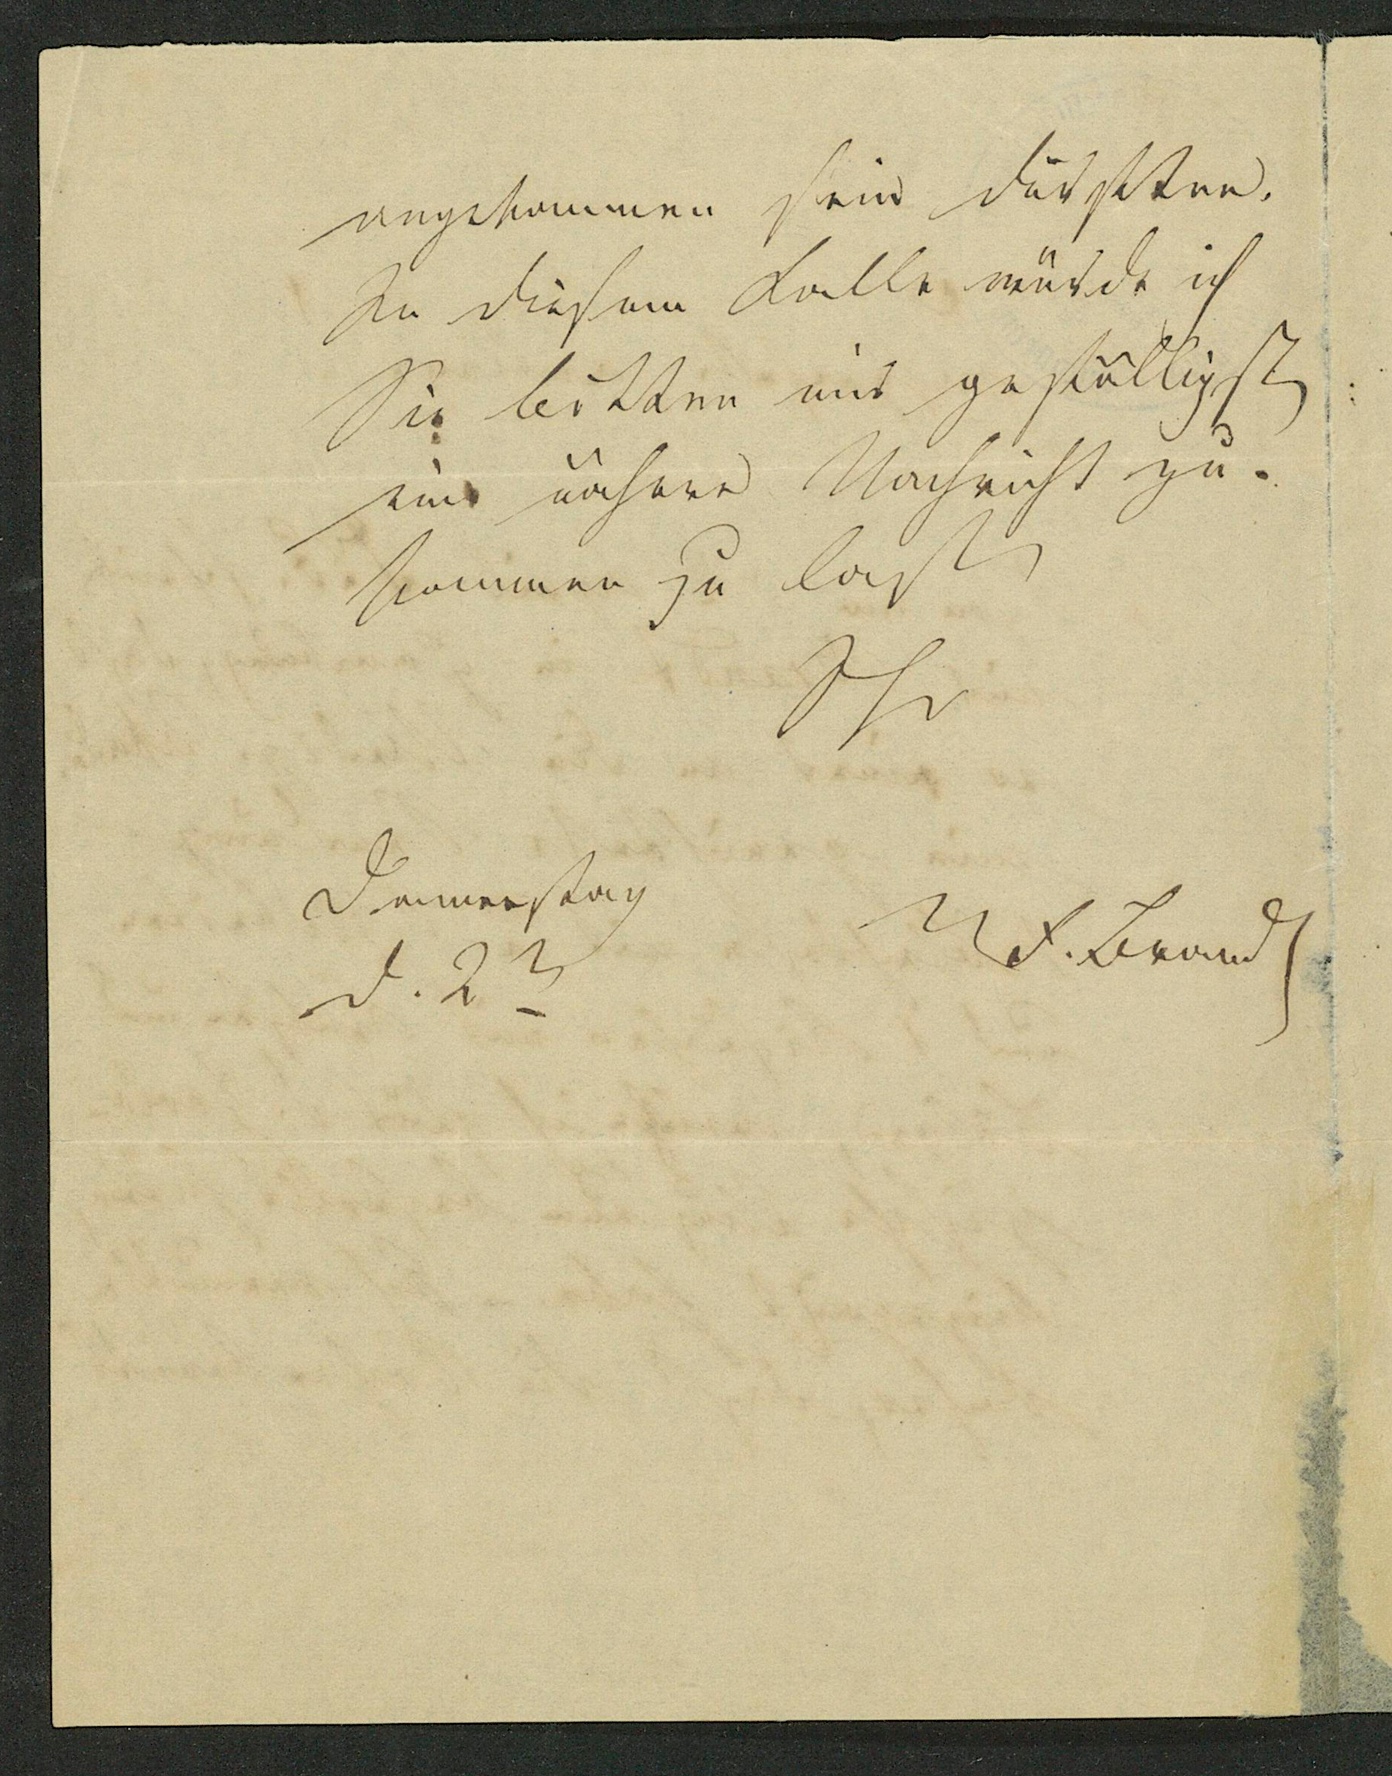 angekommen sein dürften.
In diesem Falle würde ich
Sie bitten mir gefälligst
eine nähere Nachricht zu-
kommen zu lassen
Ihr
Donnerstag
d. 2t
F. Brand